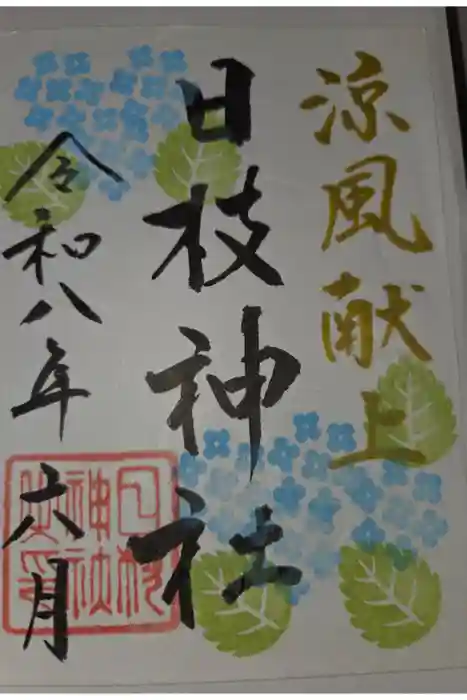 涼風献上
日枝神社
令和八年六月
日枝
神社